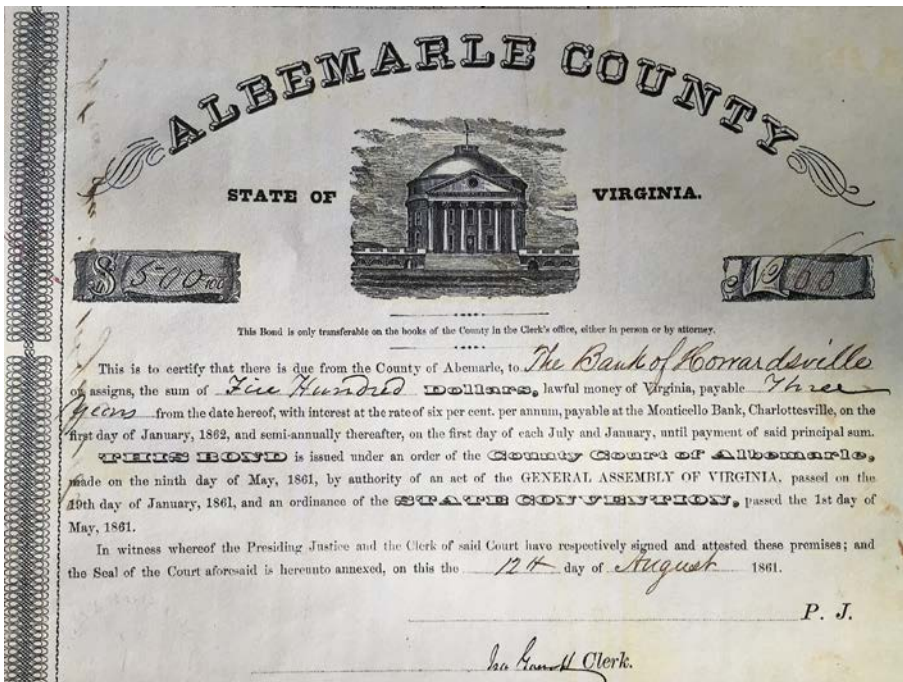 ALBEMARLE COUNTY
STATE OF VIRGINIA.
$ 500 100
No 00
This Bond is only transferable on the books of the County in the Clerk's office, either in person or by attorney.
This is to certify that there is due from the County of Abemarle, to The Bank of Howardsville
or assigns, the sum of Five Hundred Dollars, lawful money of Virginia, payable Three
Years from the date hereof, with interest at the rate of six per cent. per annum, payable at the Monticello Bank, Charlottesville, on the
first day of January, 1862, and semi-annually thereafter, on the first day of each July and January, until payment of said principal sum.
THIS BOND is issued under an order of the County Court of Albemarle,
made on the ninth day of May, 1861, by authority of an act of the GENERAL ASSEMBLY OF VIRGINIA, passed on the
19th day of January, 1861, and an ordinance of the STATE CONVENTION, passed the 1st day of
May, 1861.
In witness whereof the Presiding Justice and the Clerk of said Court have respectively signed and attested these premises; and
the Seal of the Court aforesaid is hereunto annexed, on this the 12th day of August 1861.
P. J.
Clerk.